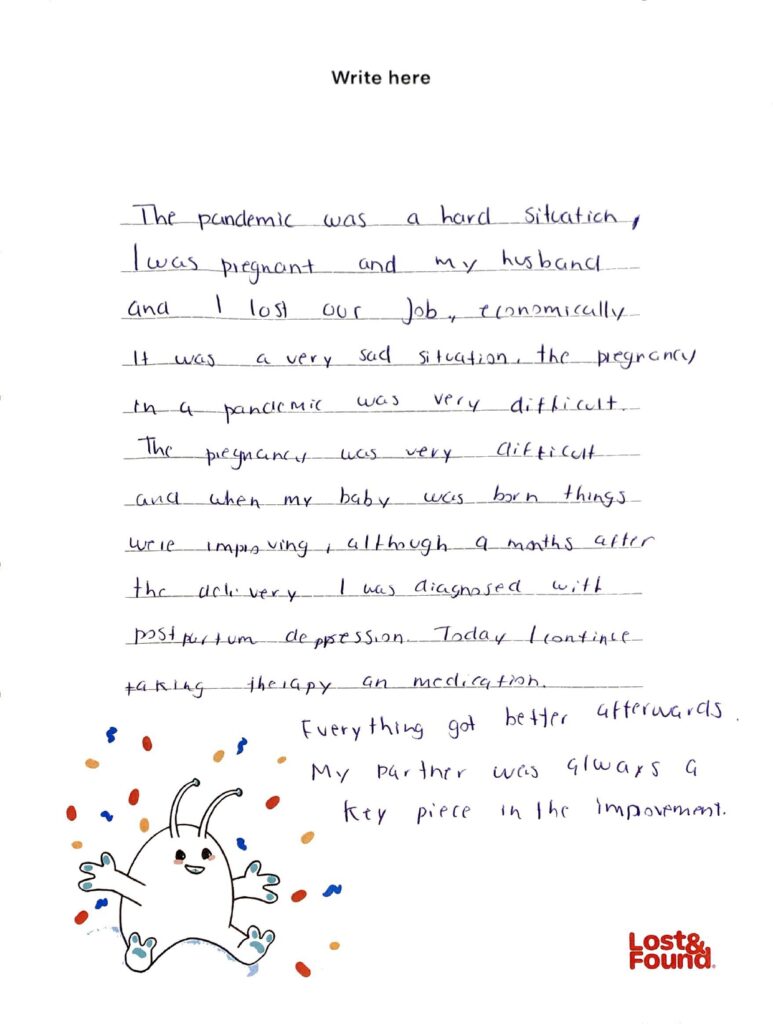 Write here
The pandemic was a hard situation,
I was pregnant and my husband
and I lost our Job, economically
It was a very sad situation. the pregnancy
in a pandemic was very difficult.
The pregnancy was very difficult
and when my baby was born things
were improving, although 9 months after
the delivery I was diagnosed with
postpartum deppression. Today I continue
taking therapy an medication.
Everything got better afterwards.
My partner was always a
key piece in the impovement.
Lost&
Found